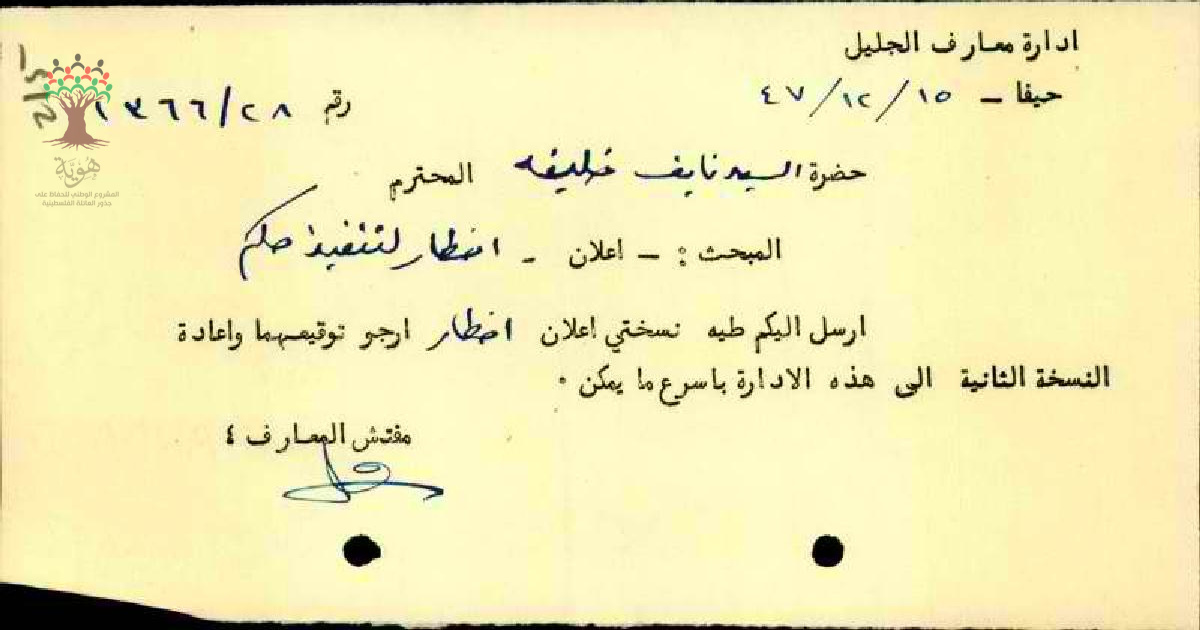 ادارة معارف الجليل
حيفا - ١٥ / ١٢ / ٤٧
رقم ١٣٦٦/٢٨
حضرة السيد نايف خليفه المحترم
المبحث : - اعلان - اخطار لتنفيذ حكم
ارسل اليكم طيه نسختي اعلان اخطار ارجو توقيعهما واعادة
النسخة الثانية الى هذه الادارة باسرع ما يمكن .
مفتش المعارف ٤
هُوِيَّة
المشروع الوطني للحفاظ على
جذور العائلة الفلسطينية